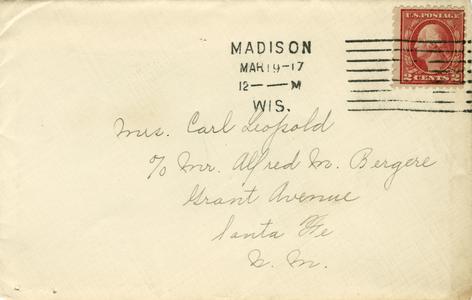 U.S. POSTAGE
2 CENTS 2
MADISON
MAR 19-17
12--M
WIS.
Mrs. Carl Leopold
℅ Mr. Alfred M. Bergere
Grant Avenue
Santa Fe
N. M.